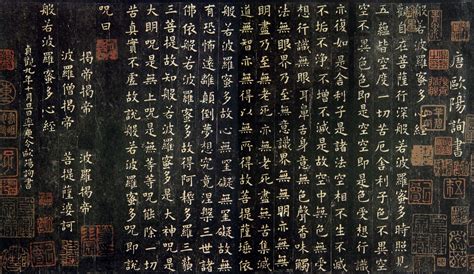 唐歐陽詢書
般若波羅蜜多心經
觀自在菩薩行深般若波羅蜜多時照見
五蘊皆空度一切苦厄舍利子色不異
空空不異色色即是空空即是色受想行識
亦復如是舍利子是諸法空相不生不滅
不垢不淨不增不減是故空中無色無受
想行識無眼耳鼻舌身意無色聲香味觸
法無眼界乃至無意識界無無明亦無無
明盡乃至無老死亦無老死盡無苦集滅
道無智亦無得以無所得故菩提薩埵依
般若波羅蜜多故心無罣礙無罣礙故無
有恐怖遠離顛倒夢想究竟涅槃三世諸
佛依般若波羅蜜多故得阿耨多羅三藐
三菩提故知般若波羅蜜多是大神呪是
大明呪是無上呪是無等等呪能除一切
苦真實不虛故說般若波羅蜜多呪即說
呪曰
揭帝揭帝 波羅揭帝
波羅僧揭帝 菩提薩婆訶
般若波羅蜜多心經
貞觀九年十月旦日率更令歐陽詢書